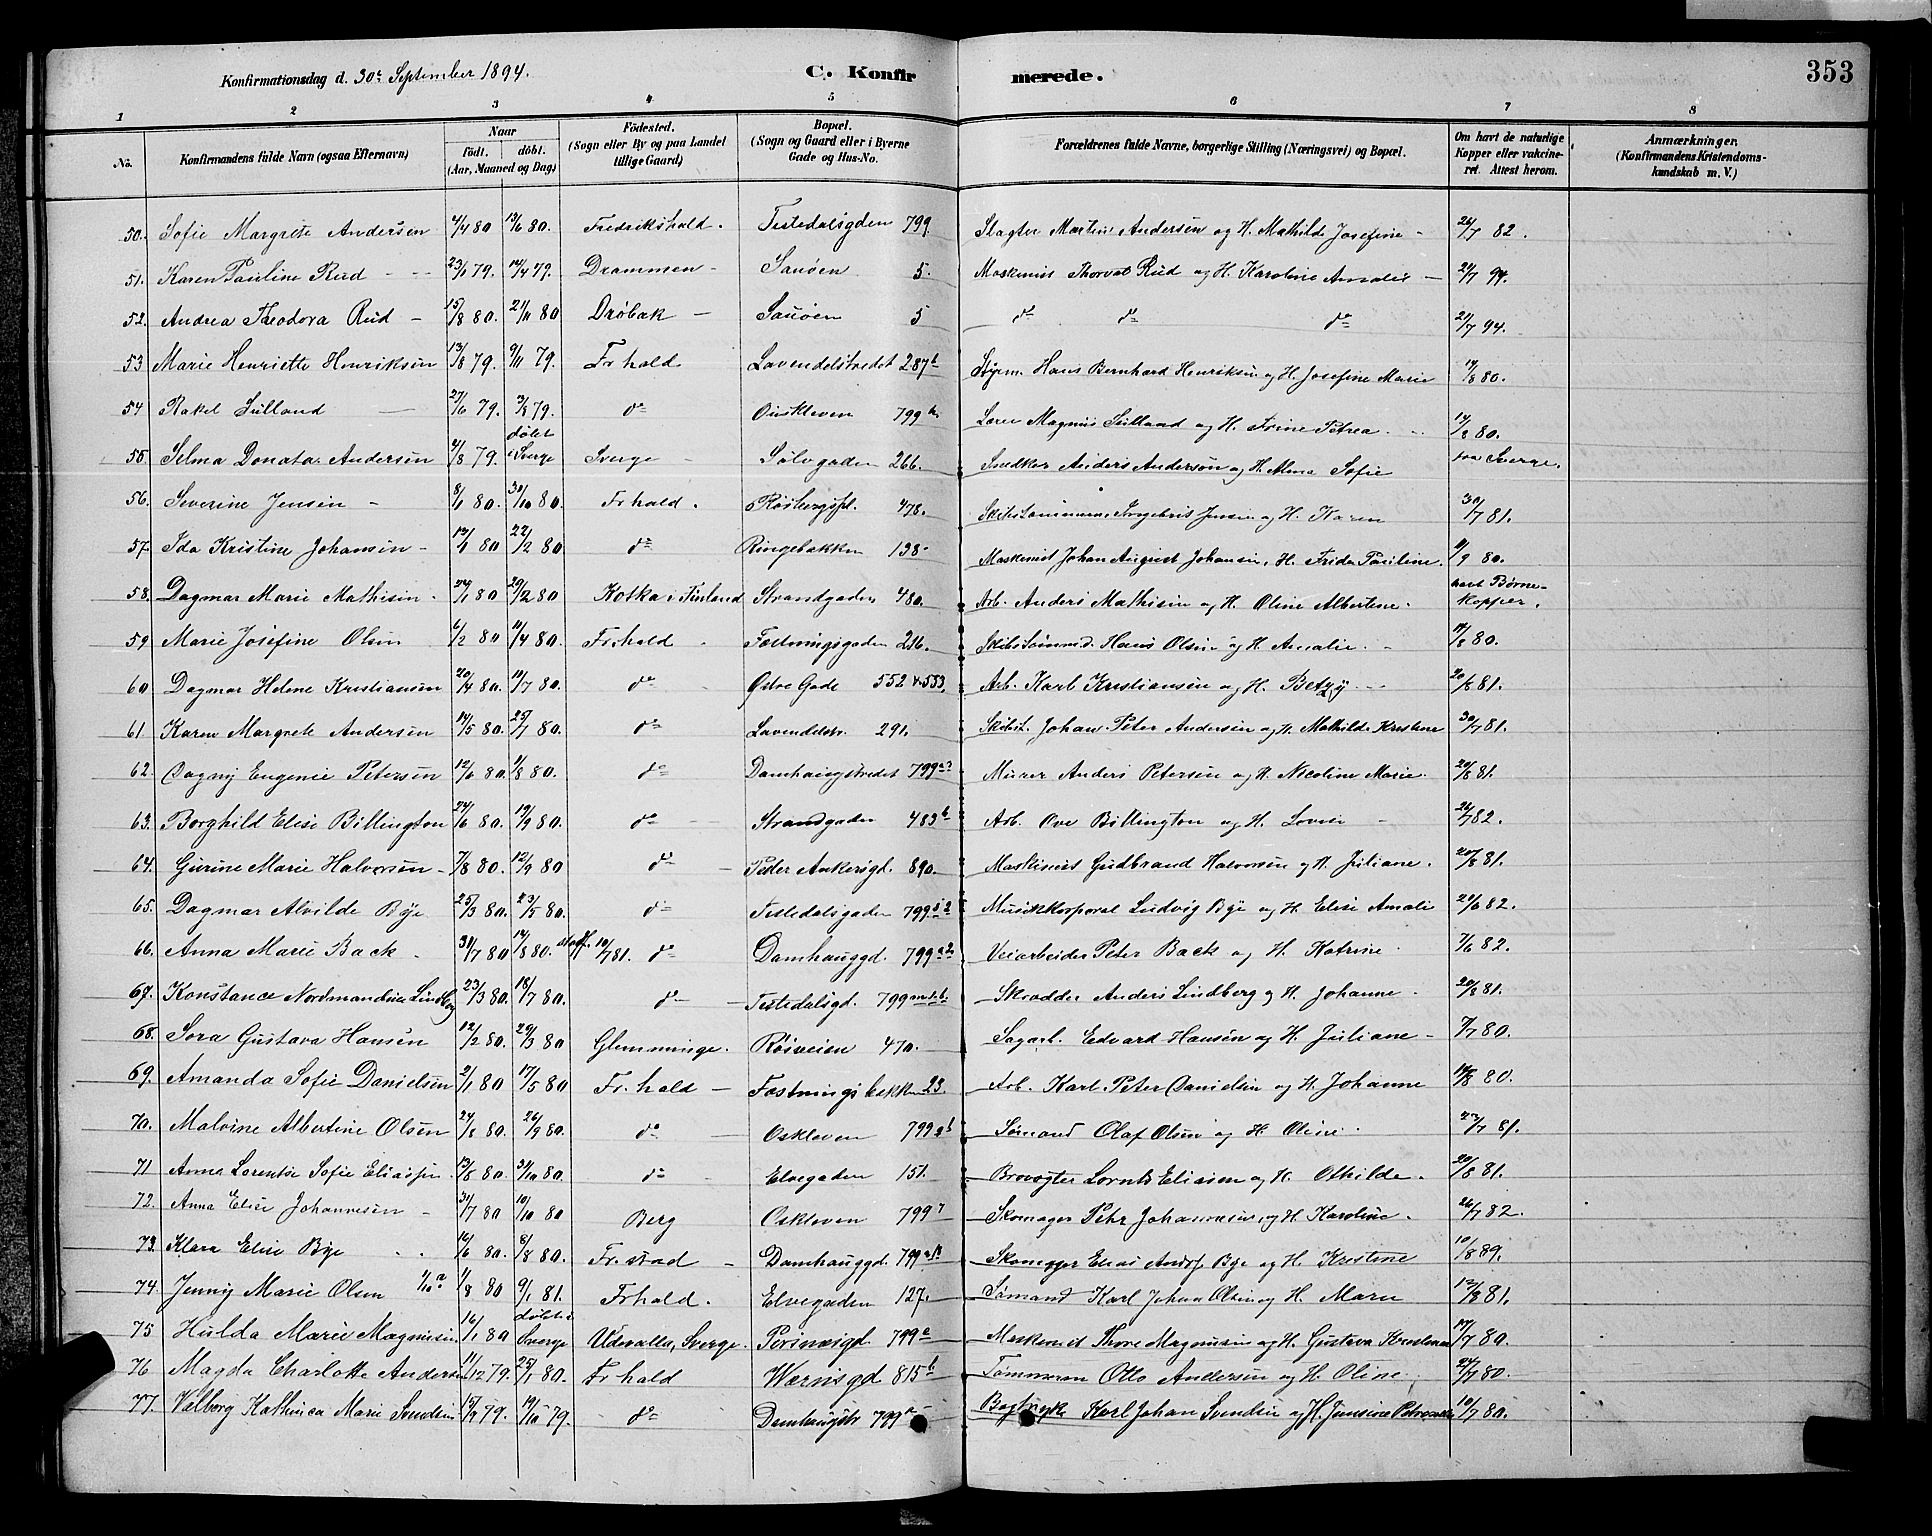 353
Konfirmationsdag d. 30te September 1894.
C. Konfirmerede.
1 2 3 4 5 6 7 8
No.
Konfirmandens fulde Navn (ogsaa Efternavn)
Naar
födt. döbt.
(Aar, Maaned og Dag)
Födested.
(Sogn eller By og paa Landet
tillige Gaard)
Bopæl.
(Sogn og Gaard eller i Byerne
Gade og Hus-No.
Forældrenes fulde Navne, borgerlige Stilling (Næringsvei) og Bopæl.
Om havt de naturlige
Kopper eller vakcine-
ret. Attest herom.
Anmærkninger.
(Konfirmandens Kristendoms-
kundskab m. V.)
50. Sofie Margrete Andersen 4/4 80 13/6 80. Fredrikshald. Tistedalsgden 799 Slagter Martin Andersen og H. Mathilde Josefine 26/7 82.
51. Karen Pauline Rud 23/1 79. 14/4 79. Drammen Sauøen 5. Maskinist Thorvat Rud og H. Karoline Amalie 21/7 94.
52. Andrea Theodora Rud 15/8 80. 21/11 80 Drøbak Sauøen 5 do do do 21/7 94.
53 Marie Henriette Henriksen 13/8 79. 9/11 79. Fr.hald Lavendelstredet 287b Styrm. Hans Bernhard Henriksen og H. Josefine Marie 14/8 80.
54 Rakel Lulland 27/6 79. 3/8 79. do Ouskleven 799 Lærer Magnus Lulland og H. Trine Petrea 14/8 80.
55. Selma Donata Andersen 2/8 79. døbt i Sverge Sverge Sølvgaden 266. Snedker Anders Andersøn og H. Alma Sofie paa Sverge.
56. Severine Jensen 8/1 80. 30/10 80 Frhald. Røsbergspl. 478. Skibstømmerm. Ingebret Jensen og H. Karen 30/7 81.
57. Ida Kristine Johansen 13/1 80 22/2 80 do Ringebakken 138. Maskinist Johan August Johansen, H. Frida Pauline. 11/9 80.
58. Dagmar Marie Mathisen 24/1 80 29/2 80 Kotka i Finland Strandgaden 480. Arb. Anders Mathisen og H. Oline Albertine. havt Børne-kopper.
59. Marie Josefine Olsen 6/2 80 11/4 80. Fr.hald Fæstningsgaden 216. Skibstømmerm. Hans Olsen og H. Amalie 14/8 80.
60 Dagmar Helene Kristiansen 20/4 80. 11/7 80. do Østre Gade 552 & 553. Arb. Karl Kristiansen og H. Betzy 20/8 81.
61. Karen Margrete Andersen 14/5 80. 25/7 80. do Lavendelstr. 291. Skibst. Johan Peter Andersen og H. Mathilde Kristine 30/7 81.
62. Dagny Eugenie Petersen 12/6 80. 1/8 80. do Damhaugstredet 799 Murer Anders Petersen og H. Nicoline Marie. 20/8 81.
63. Borghild Elise Billington 24/6 80. 19/9 80. do Strandgaden 483b Arb. Ove Billington og H. Lovise 26/7 82.
64. Gurine Marie Halvorsen 7/8 80. 12/9 80 do Peder Ankersgd. 890. Maskinist Gudbrand Halvorsen og H. Juliane. 20/8 81.
65. Dagmar Alvilde Bye 25/3 80. 23/5 80. do Tistedalsgaden 799 Musikkorporal Ludvig Bye og H. Elise Amali 24/6 82.
66. Anna Marie Back 31/7 80 14/8 80. 10/7 81. do Damhauggd. 799 Veiarbeider Peter Back og H. Katrine 7/6 82.
67. Konstance Nordmandine Lindberg 23/3 80. 18/7 80. do Tistedalsgd. 799 Skrædder Anders Lindberg og H. Johanne 20/8 81.
68. Sora Gustava Hansen 12/2 80. 29/3 80 Glemminge. Røsveien 470. Sagarb. Edvard Hansen og H. Juliane 7/7 80.
69. Amanda Sofie Danielsen 2/1 80 17/5 80 Fr.hald Fæstningsbakken 23. Arb. Karl Peter Danielsen og H. Johanne 14/8 80.
70. Malvine Albertine Olsen 24/8 80. 26/9 80. do Oskleven 799 Sømand Olaf Olsen og H. Oline. 23/7 81.
71 Anna Lorentse Sofie Eliassen 13/8 80. 31/10 80. do Elvegaden 151. Brovogter Lornts Eliasen og H. Othilde. 20/8 81.
72. Anna Elise Johannesen 31/7 80 10/10 80 Berg Oskleven 799 Skomager Pehr Johannesen, og H. Karoline. 26/7 82.
73. Klara Elise Bye 14/6 80. 8/8 80. Fr.stad Damhauggd. 799 Skomager Elias Andr. Bye og H. Kristine 10/8 89.
74. Jenny Marie Olsen 1/8 80 9/1 81. Frhald. Elvegaden 127. Sømand Karl Johan Olsen og H. Marie 13/8 81.
75 Hulda Marie Magnusen 16/1 80 døbt i Sverge Udevalla, Sverge. Peisnæsgd. 799 Maskinist Thore Magnusen og H. Gustava Kristense 17/7 80.
76 Magda Charlotte Andersen 11/12 79. 25/1 80. Frhald Wærnsgd 815b Tømmerm Otto Andersen og H. Oline. 24/7 80.
77. Valborg Kathinca Marie Svendsen 15/9 79. 19/10 79. do Damhaugstr 799 Bogtryk Karl Johan Svendsen og H. Jensine Petronelle 10/7 80.